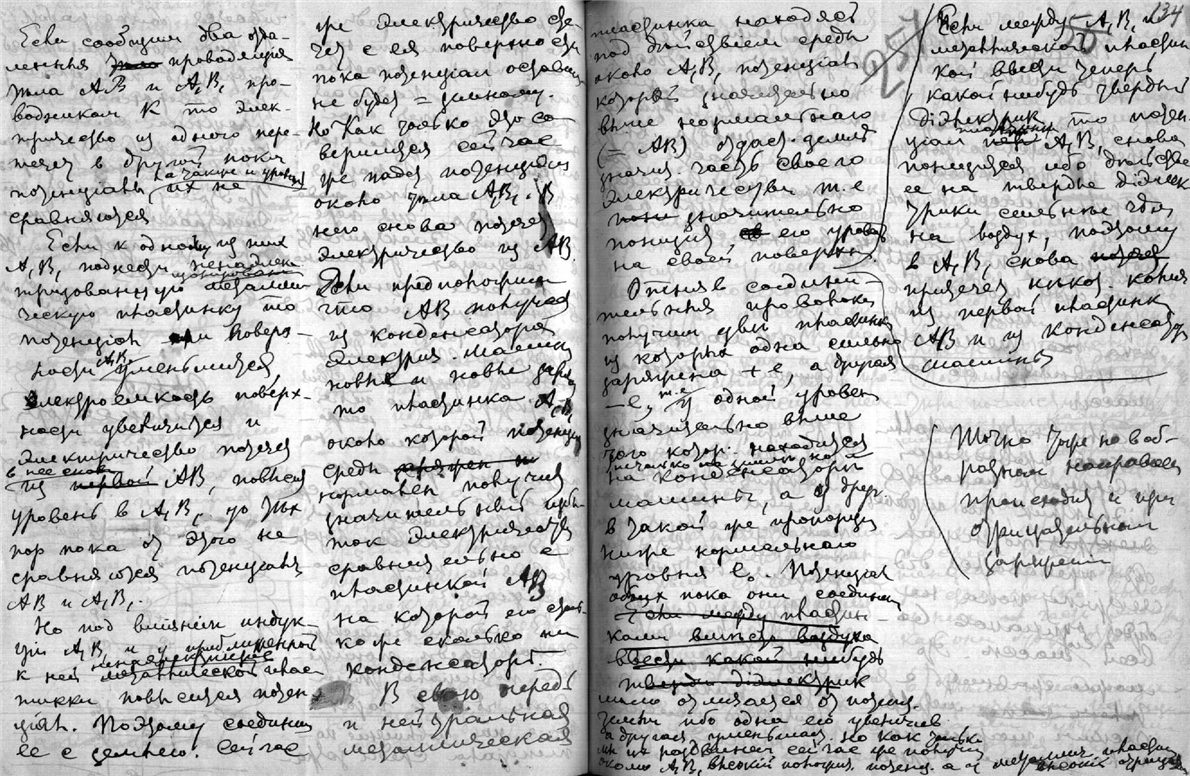 Если сообщим два отда-
ленныя проводящия
тела АВ и А₁В₁ про-
водником К то элек-
тричество из одного пере-
течет в другой пока
потенциалы их не
на такую и уровни
сравняются
Если к одному из них
А₁В₁ поднесем ненаэлек-
тризованную металли-
ческую пластинку то
потенциал на поверх-
ности А₁В₁ уменьшится
электроемкость поверх-
ности увеличится и
электричество потечет
в нее снова
из первой АВ, повысит
уровень в А₁В₁ до тех
пор пока от этого не
сравняются потенциалы
АВ и А₁В₁.
Но под влиянием индук-
ции А₁В₁ и у приближенной
к ней металлической плас-
тинки повысится потен-
циал. Поэтому соединим
ее с землею. Сейчас
же электричество сте-
чет с ея поверхности
пока потенциал оставший
не будет = земному.
Но как только это со-
вершится сейчас
же падет потенциал
около тела А₁В₁. В
него снова потечет
электричество из АВ.
Если предположим
что АВ получает
из конденсатора
электрич. машины
новые и новые заряды
то пластинка А₁В₁
около которой потенциал
среды
нормален получит
значительный изб-
ток электричества
сравнительно с
пластинкой АВ
на которой его столь-
ко же сколько на
конденсаторе.
В свою очередь
и нейтральная
металлическая
пластинка находясь
под действием среды
около А₁В₁ потенциал
которой значительно
выше нормального
(= АВ) отдаст земле
значит. часть своего
электричества т.е
значительно
понизит его уровень
на своей поверхн.
Отняв соедини-
тельныя проволоки
получим две пластинки
из которых одна сильно
заряжена +е, а другая
-е, т.е. у одной уровень
значительно выше
того котор. находится
на конденсаторе
машины, а у друг.
в такой же пропорции
ниже нормального
уровня е₀. Потенциал
обоих пока они соединены
Если между пластин-
ками вместо воздуха
ввести какой нибудь
твердый діэлектрик
мало отличается от потенц.
земли ибо одна его увеличив.
а другая уменьшая. Но как только
мы их раздвинем сейчас же получим
около А₁В₁ высокий полож. потенц. а у металлич. пластин.
высокий отрицат.
134
257
Если между А₁В₁ и
металлической пластин-
кой ввести теперь
какой нибудь твердый
діэлектрик то потен-
циал А₁В₁ снова
понизится ибо действие
ее на твердые діэлек-
трики сильнее чем
на воздух, поэтому
в А₁В₁ снова
притечет некот. колич.
из первой пластинки
АВ и из конденсатора
машины
Точно также на об-
разом направлен
происходит и при
отрицательном
заряжении